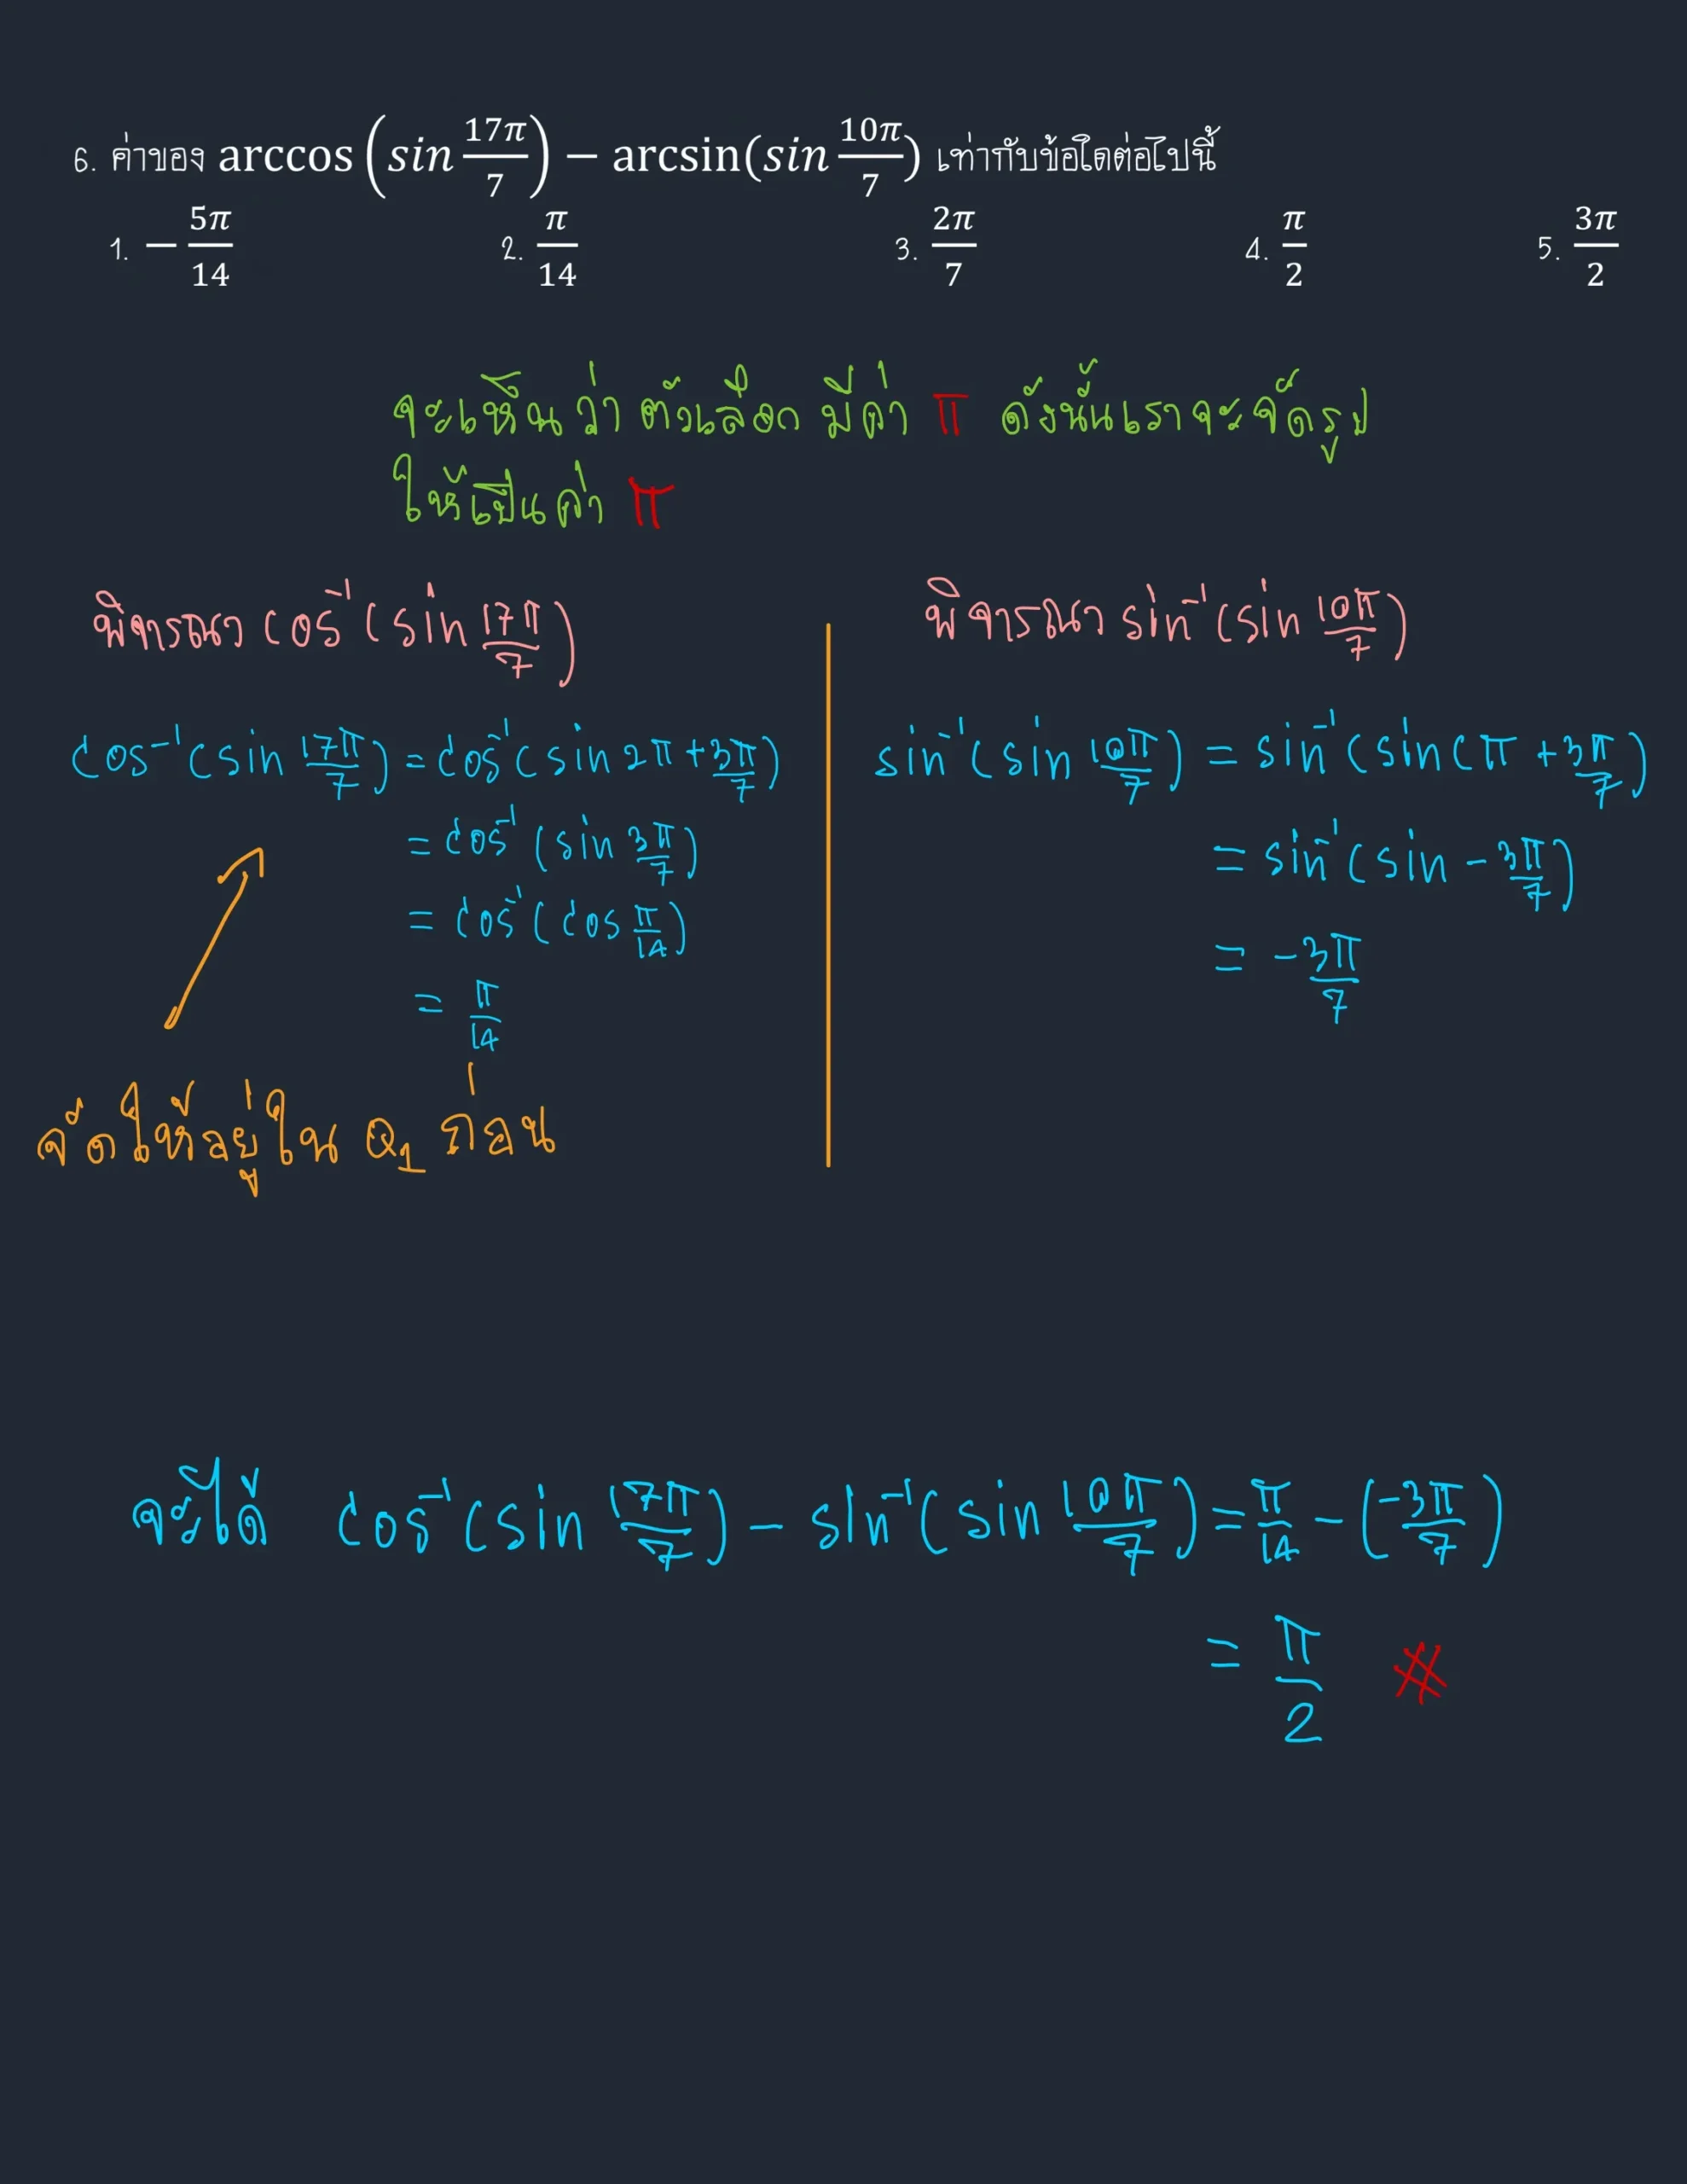 6. ค่าของ arccos (sin 17π/7) − arcsin(sin 10π/7) เท่ากับข้อใดต่อไปนี้
1. − 5π/14 2. π/14 3. 2π/7 4. π/2 5. 3π/2
จะเห็นว่า ตัวเลือก มีค่า π ดังนั้นเราจะจัดรูป
ให้เป็นค่า π
พิจารณา cos⁻¹(sin 17π/7)
cos⁻¹(sin 17π/7) = cos⁻¹(sin 2π + 3π/7)
= cos⁻¹(sin 3π/7)
= cos⁻¹(cos π/14)
= π/14
จัดให้อยู่ใน Q₁ ก่อน
พิจารณา sin⁻¹(sin 10π/7)
sin⁻¹(sin 10π/7) = sin⁻¹(sin(π + 3π/7)
= sin⁻¹(sin − 3π/7)
= −3π/7
จะได้ cos⁻¹(sin 17π/7) − sin⁻¹(sin 10π/7) = π/14 − (−3π/7)
= π/2 #